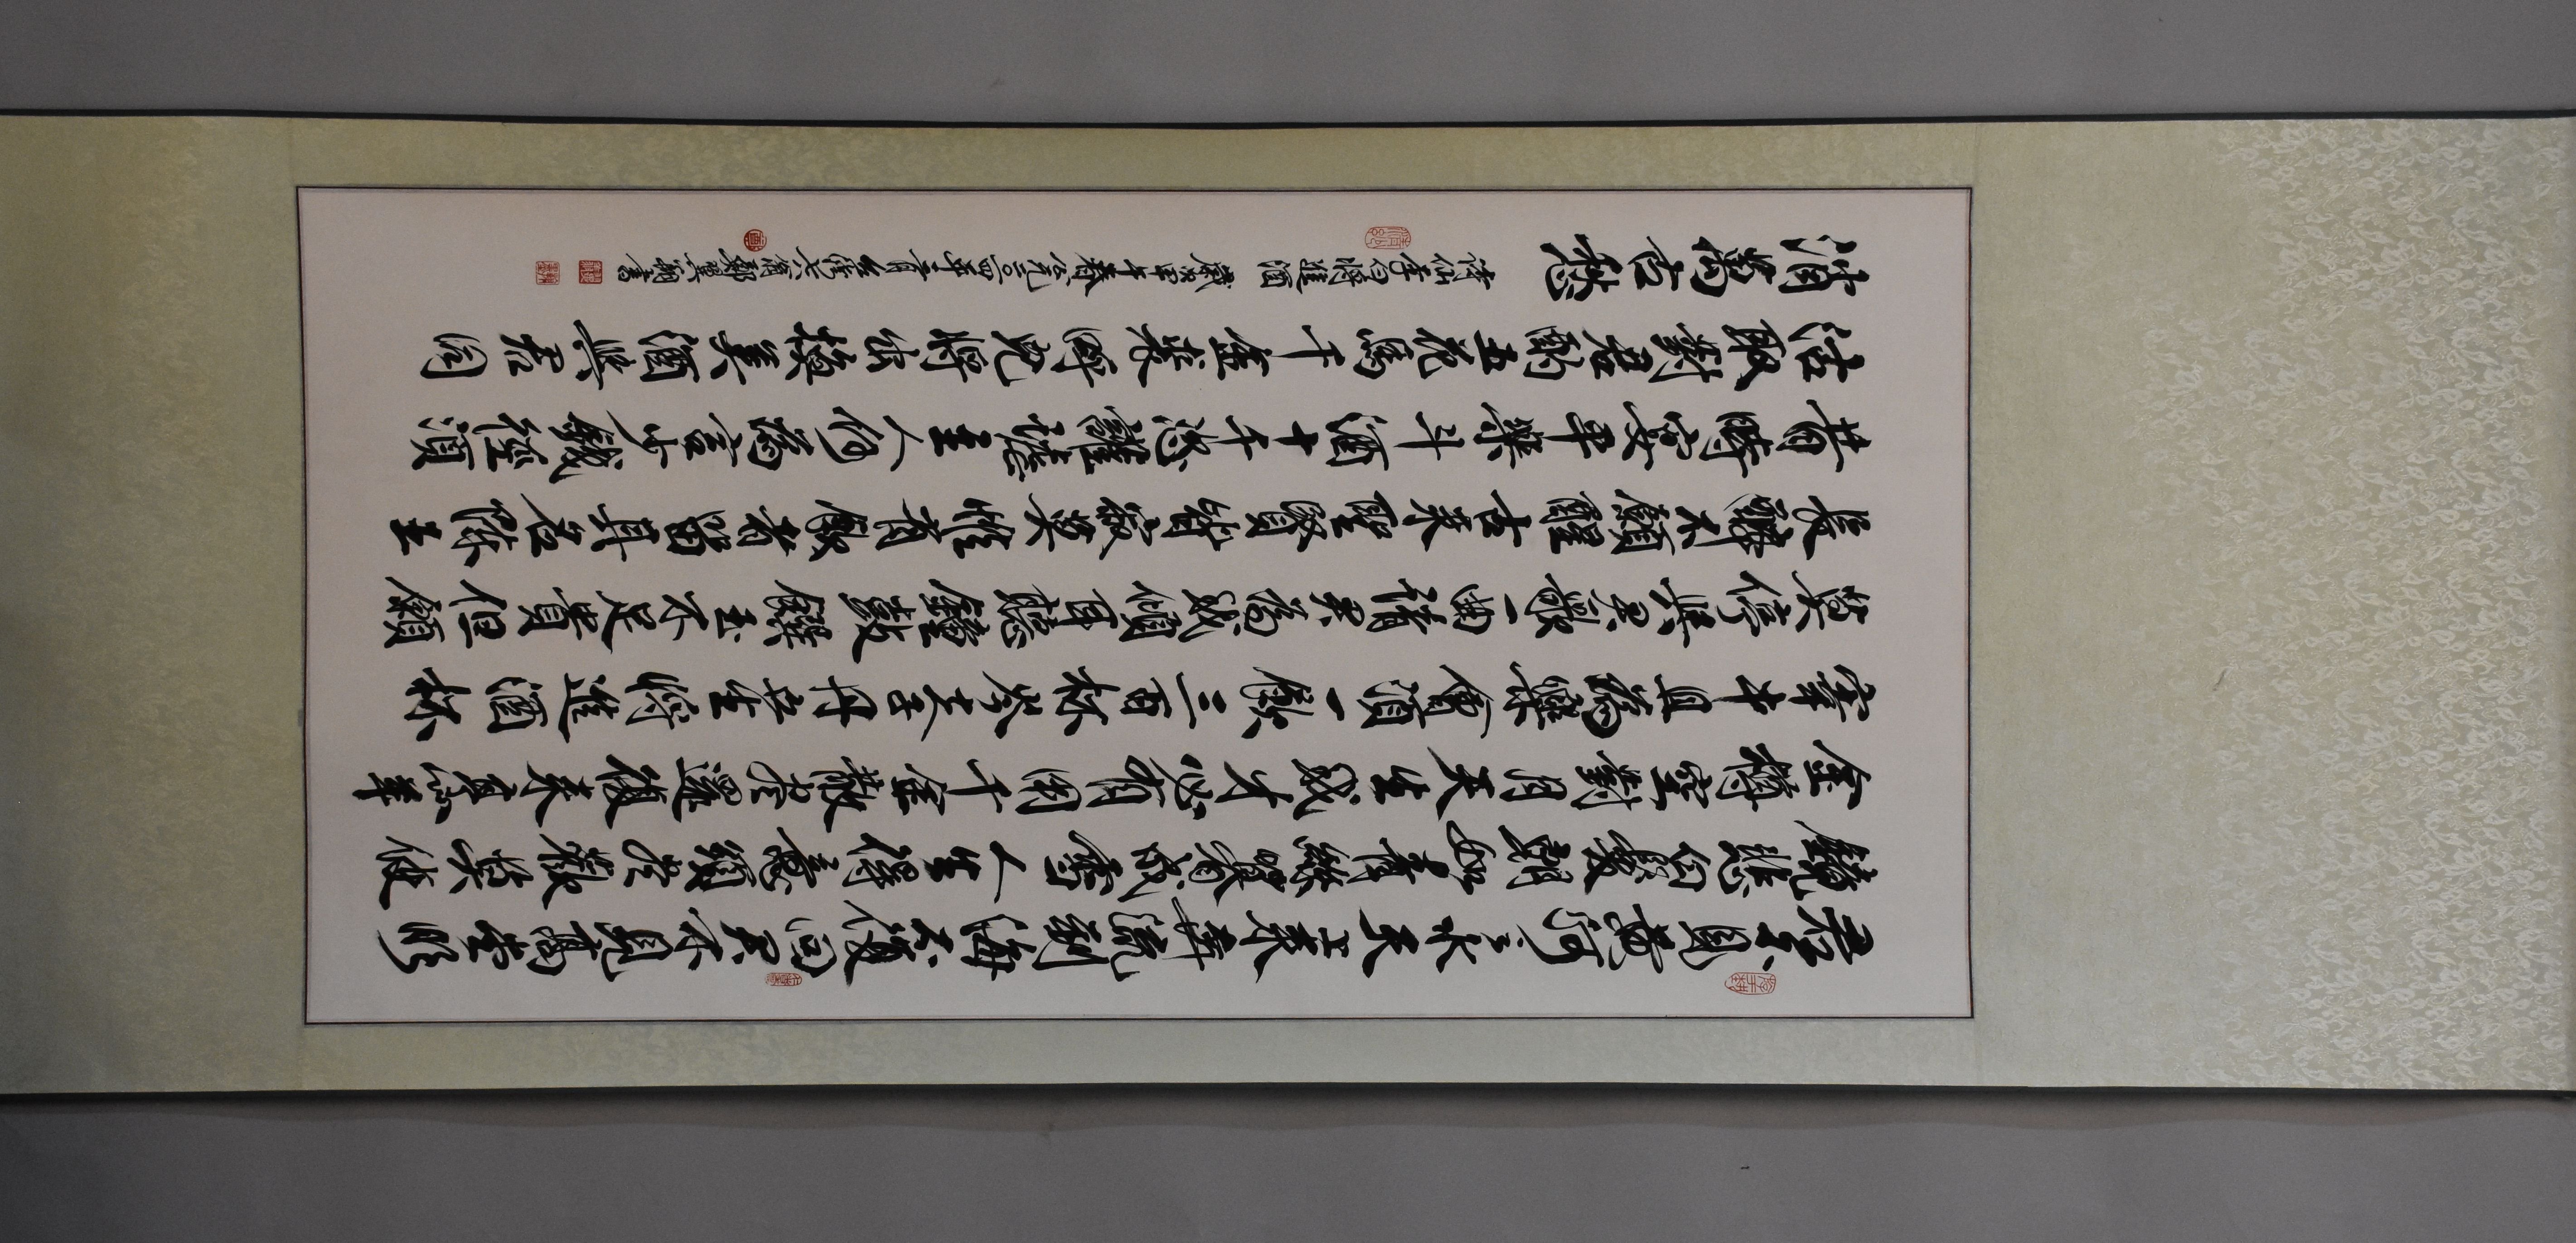 君不見黃河之水天上來奔流到海不復回君不見高堂明
鏡悲白髮朝如青絲暮成雪人生得意須盡歡莫使
金樽空對月天生我才必有用千金散盡還復來烹羊
宰牛且為樂會須一飲三百杯岑夫子丹丘生將進酒杯
莫停與君歌一曲請君為我傾耳聽鐘鼓饌玉不足貴但願
長醉不願醒古來聖賢皆寂寞惟有飲者留其名陳王
昔時宴平樂斗酒十千恣讙謔主人何為言少錢徑須
沽取對君酌五花馬千金裘呼兒將出換美酒與君同
消萬古愁
詩仙李白將進酒 歲 甲午春公元二〇一四年 書